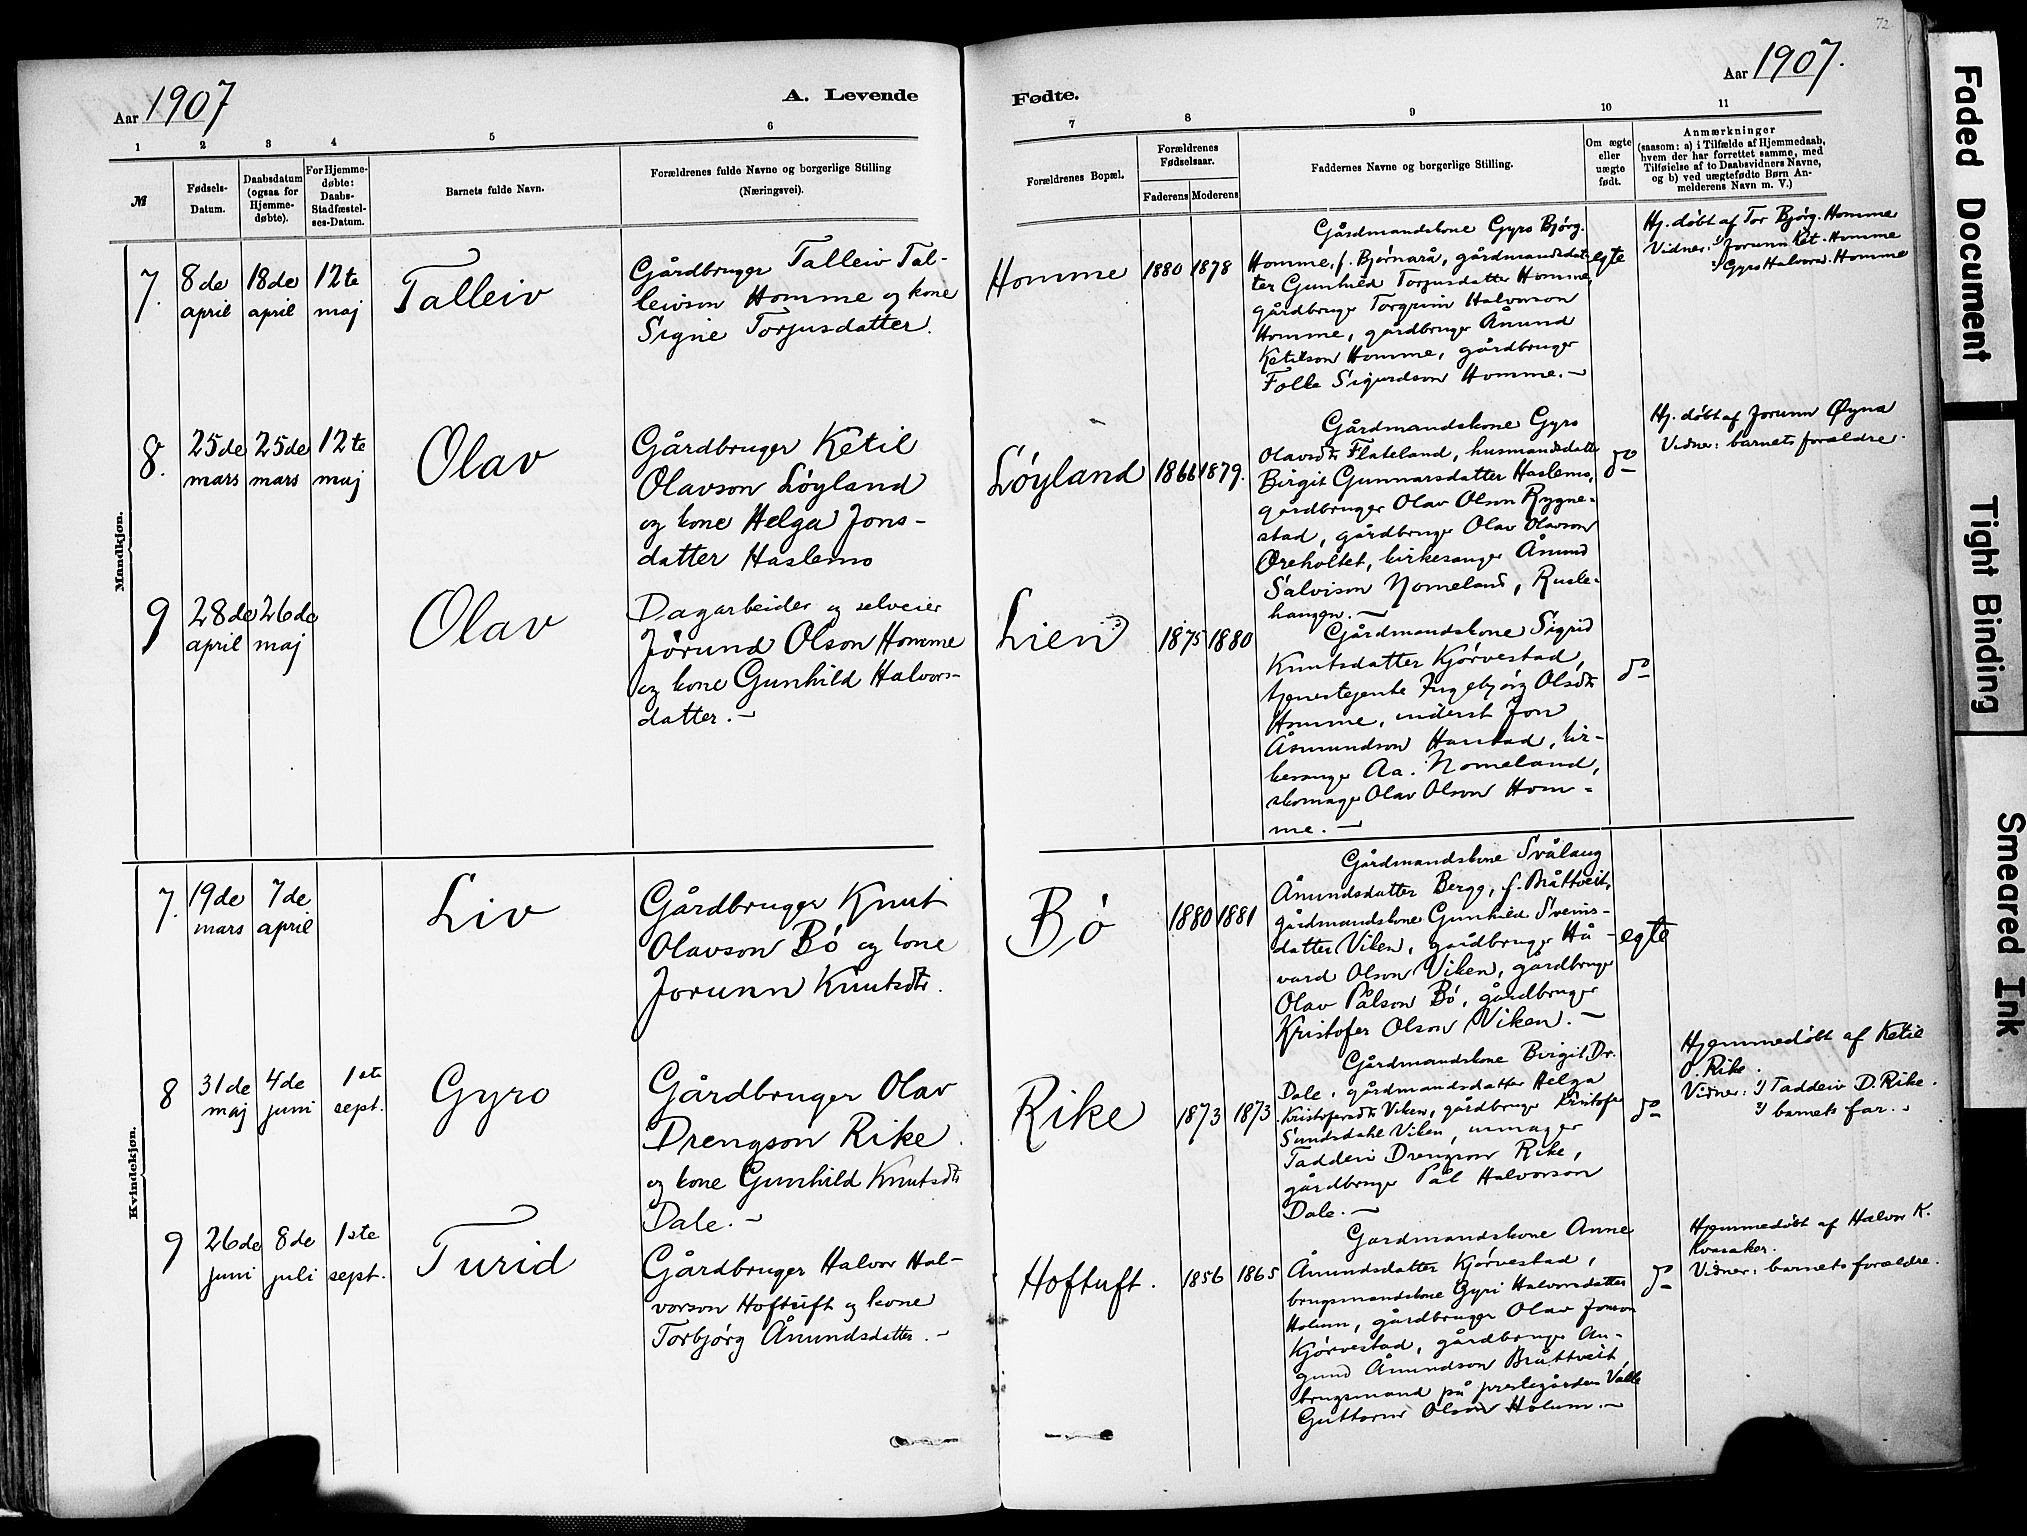 72
Aar 1907
A. Levende
Fødte.
Aar 1907.
1 2 3 4 5 6 7 8 9 10 11
№
Fødsels-
Datum.
Daabsdatum
(ogsaa for
Hjemme-
døbte).
For Hjemme-
døbte:
Daabs-
Stadfæstel-
ses-Datum.
Barnets fulde Navn.
Forældrenes fulde Navne og borgerlige Stilling
(Næringsvei).
Forældrenes Bopæl.
Forældrenes
Fødselsaar.
Faderens Moderens
Faddernes Navne og borgerlige Stilling.
Om ægte
eller
uægte
født.
Anmærkninger
(saasom: a) i Tilfælde af Hjemmedaab,
hvem der har forrettet samme, med
Tilføielse af to Daabsvidners Navne,
og b) ved uægtefødte Børn An-
melderens Navn m. V.)
Mandkjøn.
7. 8de april 18de april 12te maj
Talleiv
Gårdbruger Talleiv Tal-
leivson Homme og kone
Signe Torjusdatter.
Homme 1880 1878
Gårdmandskone Gyro Bjørg.
Homme, f. Bjørnarå, gårdmandsdat-
ter Gunhild Torjusdatter Homme,
gårdbruger Torgrim Halvorson
Homme, gårdbruger Ånund
Ketilson Homme, gårdbruger
Folke Sigurdson Homme.-
egte
Hj. døbt af Tor Bjørg. Homme
Vidner: 1) Jorunn Ket. Homme
2) Gyro Halvorsd. Homme
8. 25de mars 25de mars 12te maj
Olav
Gårdbruger Ketil
Olavson Løyland
og kone Helga Jons-
datter Haslemo
Løyland 1866 1879.
Gårdmandskone Gyro
Olavsdtr Flateland, husmandsdatter
Birgit Gunnarsdatter Haslemo,
gårdbruger Olav Olson Rygne-
stad, gårdbruger Olav Olavson
Øreholtet, kirkesanger Ånund
Salvison Nomeland, Rusle-
haugen.-
do
Hj. døbt af Jorunn Øyna
Vidner: barnets forældre.
9 28de april 26de maj
Olav
Dagarbeider og selveier
Jørund Olson Homme
og kone Gunhild Halvors-
datter.-
Lien 1875 1880
Gårdmandskone Sigrid
Knutsdatter Kjørvestad,
tjenestejente Ingebjørg Olsdtr
Homme, inderst Jon
Åsmundson Harstad, kir-
kesanger Aa. Nomeland,
skomager Olav Olson Hom-
me.-
do
Kvindekjøn.
7. 19de mars 7de april
Liv
Gårdbruger Knut
Olavson Bø og kone
Jorunn Knutsdtr.
Bø 1880 1881
Gårdmandskone Svålaug
Ånundsdatter Bergg, f. Bråttveit,
gårdmandskone Gunhild Sveins-
datter Viken, gårdbruger Hå-
vard Olson Viken, gårdbruger
Olav Pålson Bø, gårdbruger
Kristofer Olson Viken.-
egte
8 31de maj 4de juni 1ste sept.
Gyro
Gårdbruger Olav
Drengson Rike
og kone Gunhild Knutsdtr
Dale.-
Rike 1873 1873
Gårdmandskone Birgit Dr.
Dale, gårdmandsdatter Helga
Kristofersdtr Viken, gårdbruger Kristofer
Sundsdahl Viken, urmager
Taddeiv Drengson Rike,
gårdbruger Pål Halvorson
Dale.-
do
Hjemmedøbt af Ketil
O. Rike.
Vidner: 1) Taddeiv D. Rike.
2) barnets far.-
9 26de juni 8de juli 1ste sept.
Turid
Gårdbruger Halvor Hal-
vorson Hoftuft og kone
Torbjørg Ånundsdatter.-
Hoftuft. 1856 1865
Gardmandskone Anne
Ånundsdatter Kjørvestad,
brugsmandskone Gyri Halvorsdatter
Holum, gårdbruger Olav Jonson
Kjørvestad, gårdbruger An-
gund Ånundson Bråttveit,
brugsmand på prestegården Valle
Guttorm Olson Holum.-
do
Hjemmedøbt af Halvor K.
Kvasaker.
Vidner: barnets forældre.
Faded Document
Tight Binding
Smeared Ink